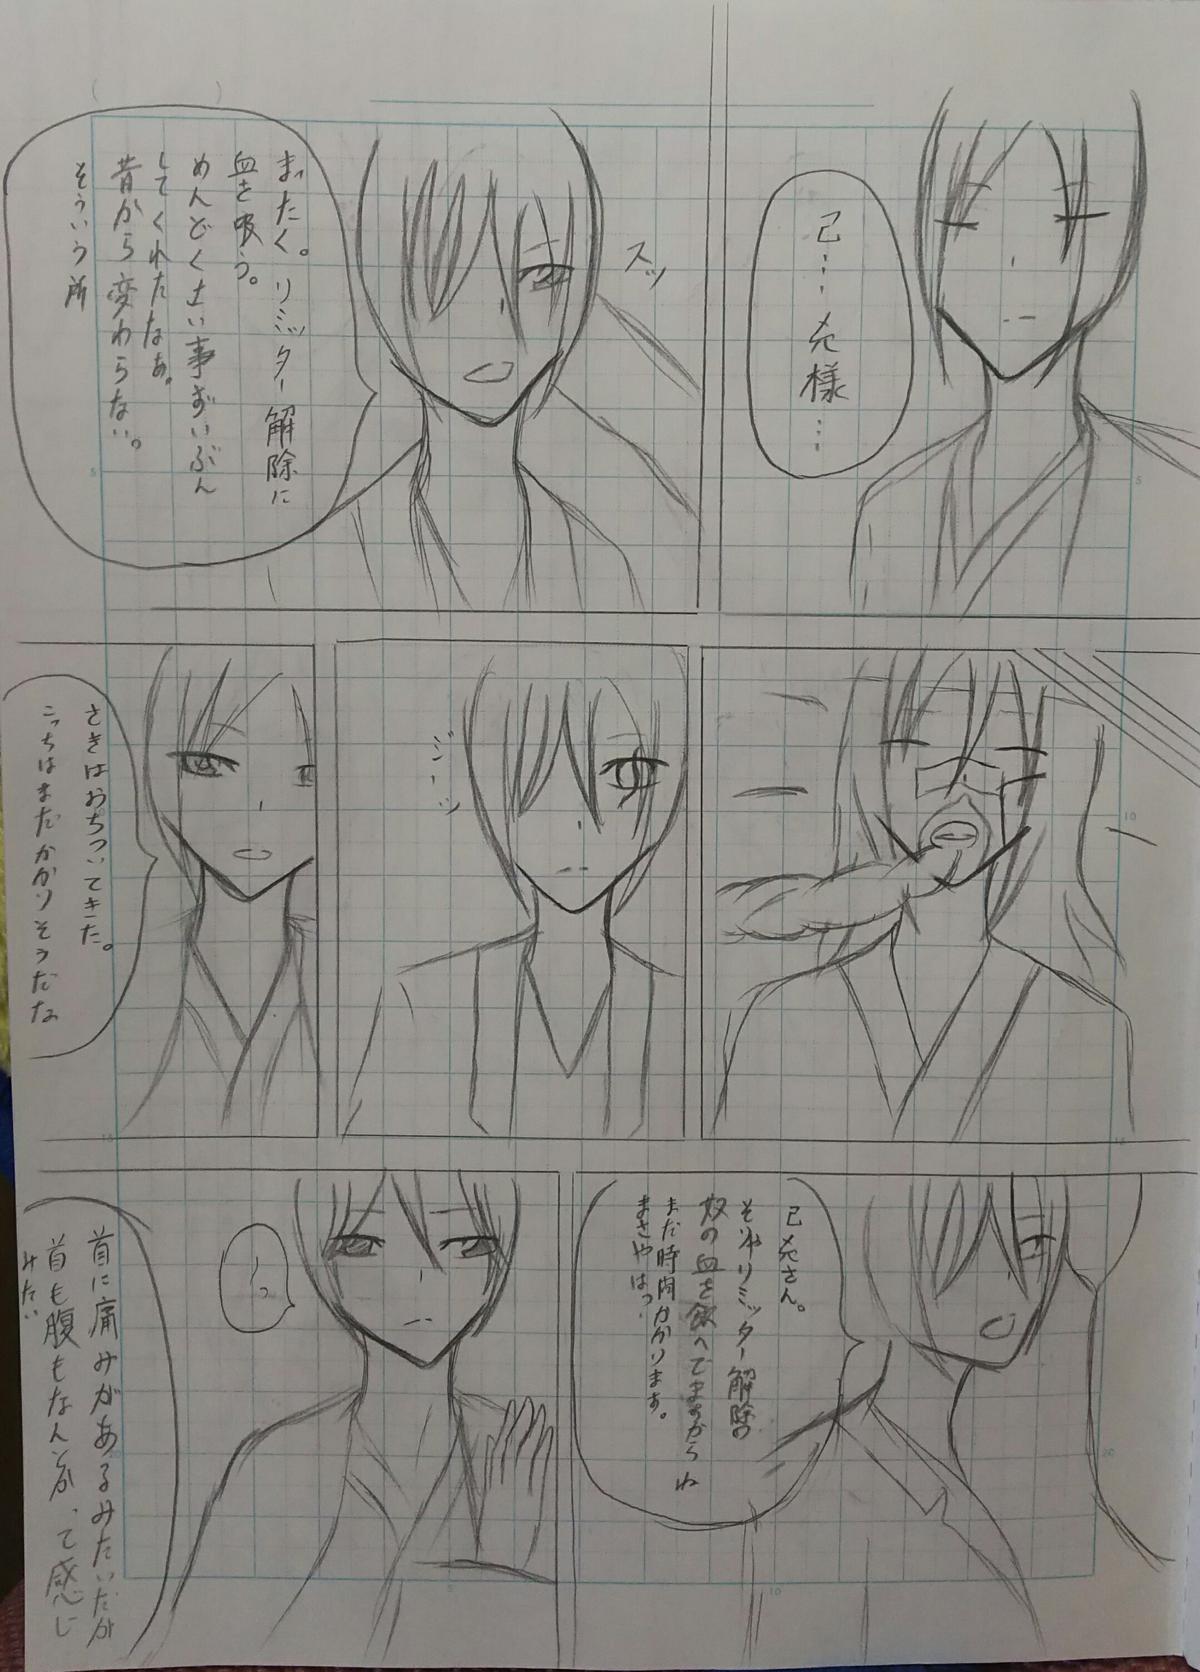 己…
様…
スッ
まったく。リミッター解除に
血を吸う。
めんどくさい事ずいぶん
してくれたなぁ。
昔から変わらない。
そういう所
ジーッ
さきはおちついてきた。
こっちはまだかかりそうだな
さん。
リミッター解除の
奴の血を
まだ時間かかります。
まさやはっ
～っ
首に痛みがあるみたいだが
首も腹もなんとかって感じ
みたい
5
5
10
15
15
20
20
5
10